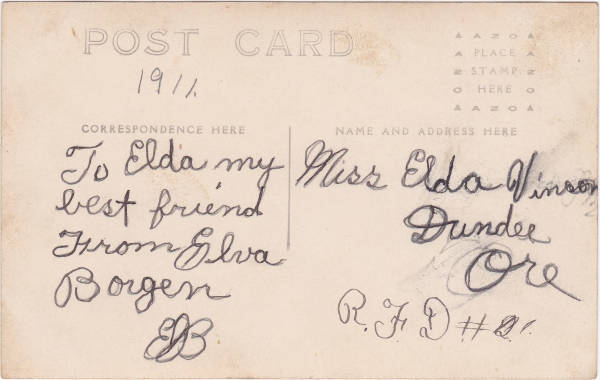 POST CARD
1911.
AZO
PLACE
STAMP
HERE
AZO
CORRESPONDENCE HERE
To Elda my
best friend
From Elva
Borgen
EB
NAME AND ADDRESS HERE
Miss Elda Vinson
Dundee
Ore
R.F.D #